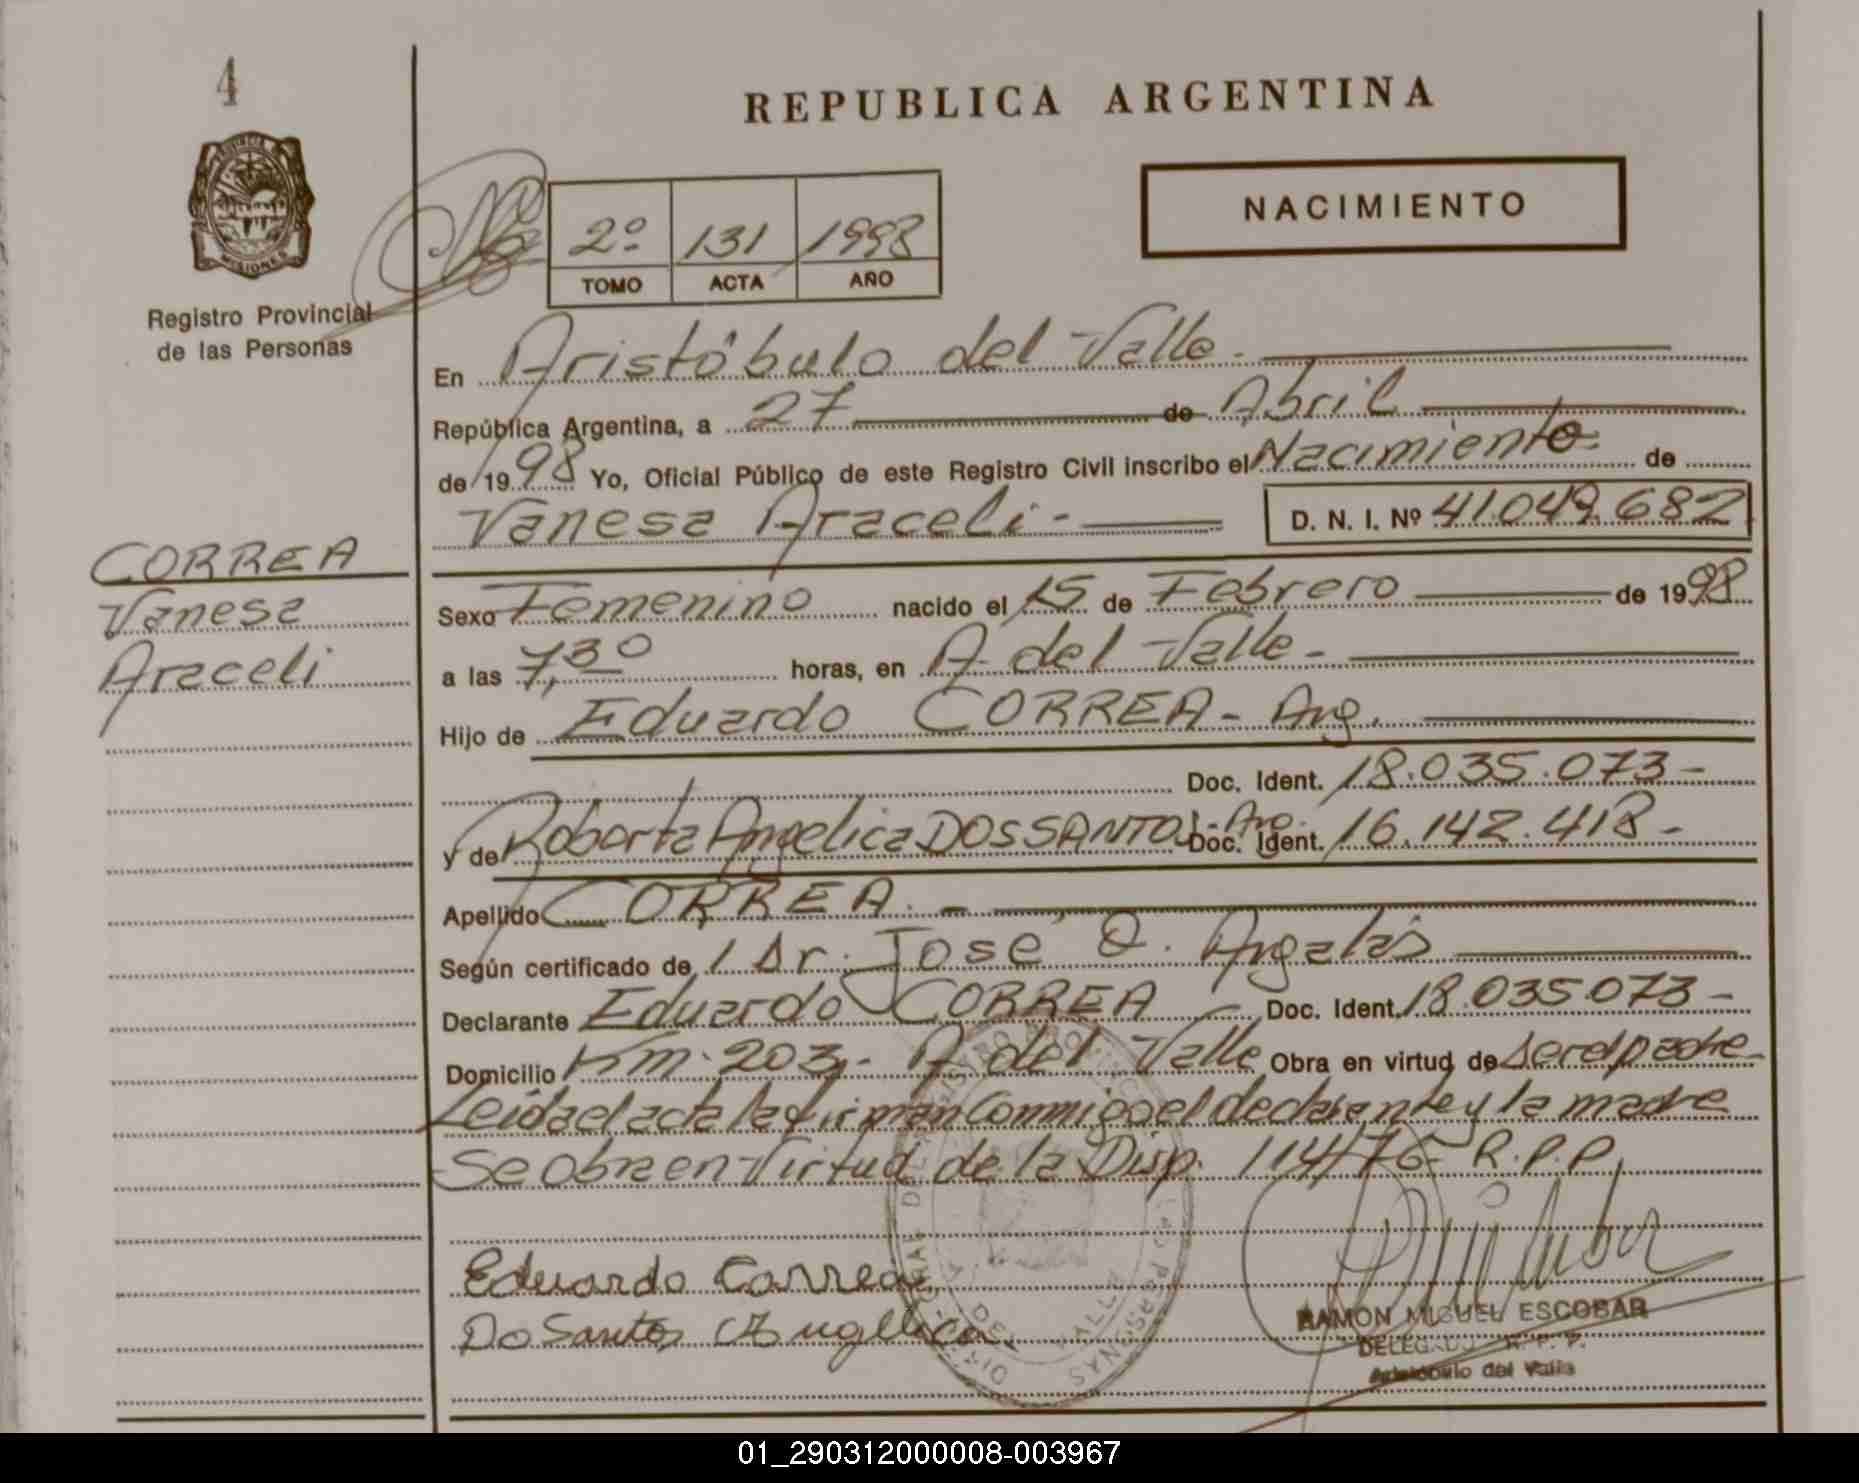 4
REPUBLICA ARGENTINA
NACIMIENTO
2º 131 1998
TOMO ACTA AÑO
MISIONES
Registro Provincial
de las Personas
En Aristóbulo del Valle.
República Argentina, a 27 de Abril
de 1998 Yo, Oficial Público de este Registro Civil inscribo el Nacimiento de
Vanesa Araceli - D. N. I. Nº 41.049.682
CORREA
Vanesa
Araceli
Sexo Femenino nacido el 15 de Febrero de 1998
a las 7,30 horas, en A. del Valle -
Hijo de Eduardo CORREA - Arg.
Doc. Ident. 18.035.073 -
y de Roberta Angelica DOS SANTOS - Arg. Doc. Ident. 16.142.418 -
Apellido CORREA. -
Según certificado de Dr. José O.
Declarante Eduardo CORREA Doc. Ident. 18.035.073 -
Domicilio Km. 203, - A. del Valle Obra en virtud de ser el padre
Leida el acta la firman Conmigo el declarante y la madre
Se obra en Virtud de la Disp. 114/76 - R.P.P.
Eduardo Correa
Do Santos Angelica
RAMON MIGUEL ESCOBAR
DELEGADO R. P. P.
Aristóbulo del Valle
01_290312000008-003967